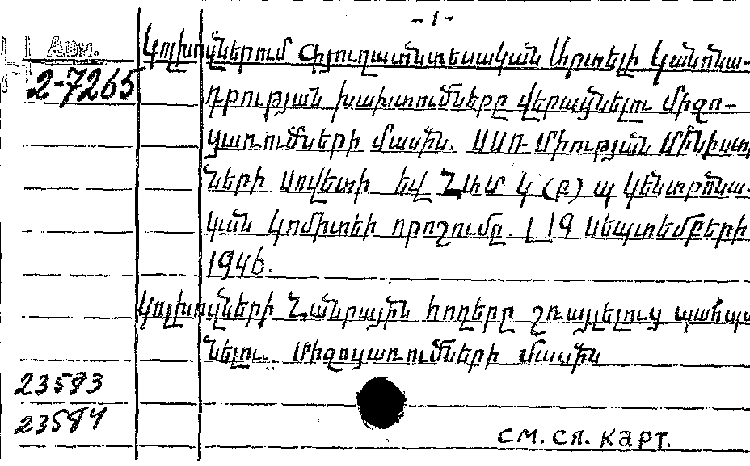 -1-
Арм.
Կոլխոզներում Գյուղատնտեսական Արտելի Կանոնա-
2-7265
դրության խախտումները վերացնելու միջո-
ցառումների մասին. ՍՍՌ Միության Մինիստր
ների Սովետի եվ ՀամԿ(բ)պ Կենտրոնա-
կան Կոմիտեի որոշումը. 19 Սեպտեմբերի
1946.
Կոլխոզների Հանրային հողերը շռայլելուց պահպա
նելու Միջոցառումների մասին
23593
23594
см. сл. карт.